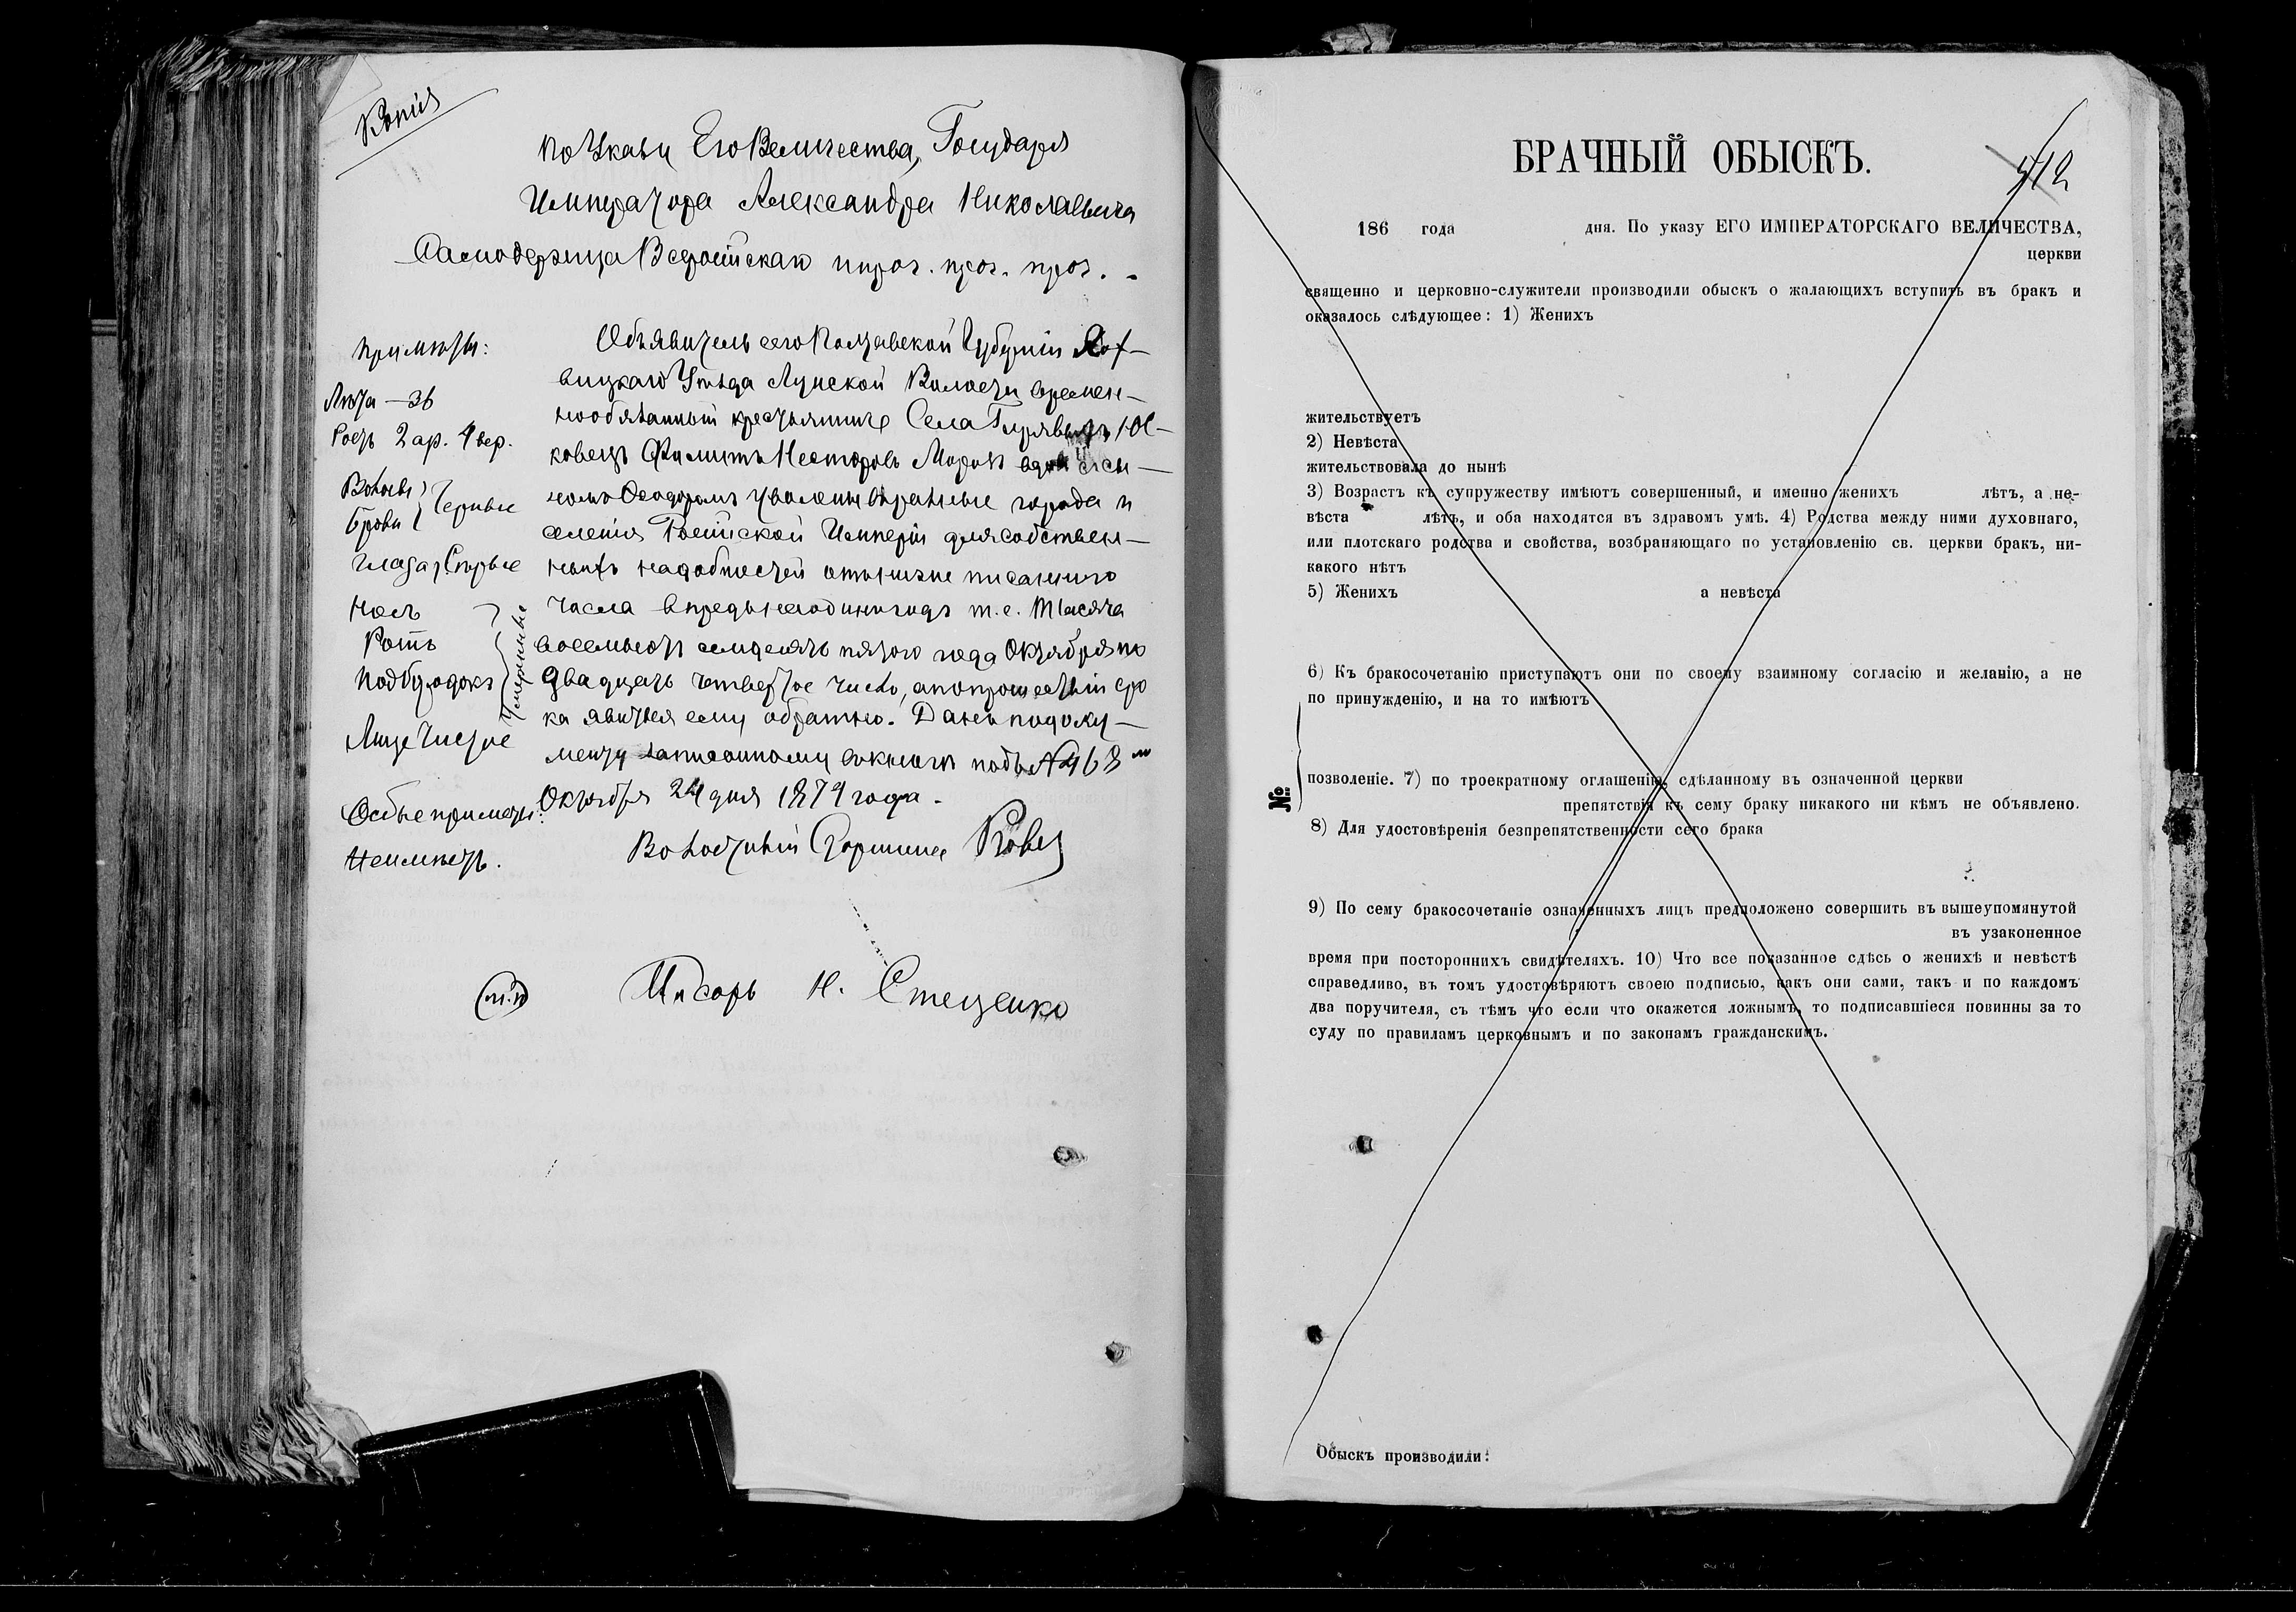 Копія
По Указу Его Величества, Государя
Императора Александра Николаевича
Самодержца Всероссійскаго и проч. проч. проч.
Примѣты:
Лѣта — 36
Ростъ 2 ар. 4 вер.
Волосы
брови } Черные
глаза Сѣрые
Носъ
Ротъ
Подбородокъ } Умѣренные
Лице Чистое
Особые примѣты:
Неимѣетъ.
Объявитель сего Полтавской Губерніи Лох-
вицкаго Уѣзда Луцской Волости времен-
нообязанный крестьянинъ Села Гирявыхъ Ис-
ковецъ Филипъ Несторовъ Моро съ сы-
номъ Феодоромъ уволенъ въ разные города и
селенія Россійской Имперіи для собствен-
ныхъ надобностей отъ ниже писанного
числа впредь на одинъ годъ т. е. тысяча
восемьсотъ семдесятъ пятого года Октября по
двадцать четвертое число, а по прошествіи сро
ка явиться ему обратно. Данъ по доку-
менту записанному въ книгѣ подъ № 468 м
Октября 24 дня 1874 года.
Волостный Старшина
(м.п)
Писарь Н. Стеценко
БРАЧНЫЙ ОБЫСКЪ.
512
186 года дня. По указу ЕГО ИМПЕРАТОРСКАГО ВЕЛИЧЕСТВА,
церкви
священно и церковно-служители производили обыскъ о жалающихъ вступить въ бракъ и
оказалось слѣдующее: 1) Женихъ
жительствуетъ
2) Невѣста
жительствовала до нынѣ
3) Возрастъ къ супружеству имѣютъ совершенный, и именно женихъ лѣтъ, а не-
вѣста лѣтъ, и оба находятся въ здравомъ умѣ. 4) Родства между ними духовнаго,
или плотскаго родства и свойства, возбраняющаго по установленію св. церкви бракъ, ни-
какого нѣтъ
5) Женихъ а невѣста
6) Къ бракосочетанію приступаютъ они по своему взаимному согласію и желанію, а не
по принужденію, и на то имѣютъ
№
позволеніе. 7) по троекратному оглашенію, сдѣланному въ означенной церкви
препятствія къ сему браку никакого ни кѣмъ не объявлено.
8) Для удостовѣренія безпрепятственности сего брака
9) По сему бракосочетаніе означенныхъ лицъ предположено совершить въ вышеупомянутой
въ узаконенное
время при постороннихъ свидѣтеляхъ. 10) Что все показанное сдѣсь о женихѣ и невѣстѣ
справедливо, въ томъ удостовѣряютъ своею подписью, какъ они сами, такъ и по каждомъ
два поручителя, съ тѣмъ что если что окажется ложнымъ, то подписавшіеся повинны за то
суду по правиламъ церковнымъ и по законамъ гражданскимъ.
Обыскъ производили: